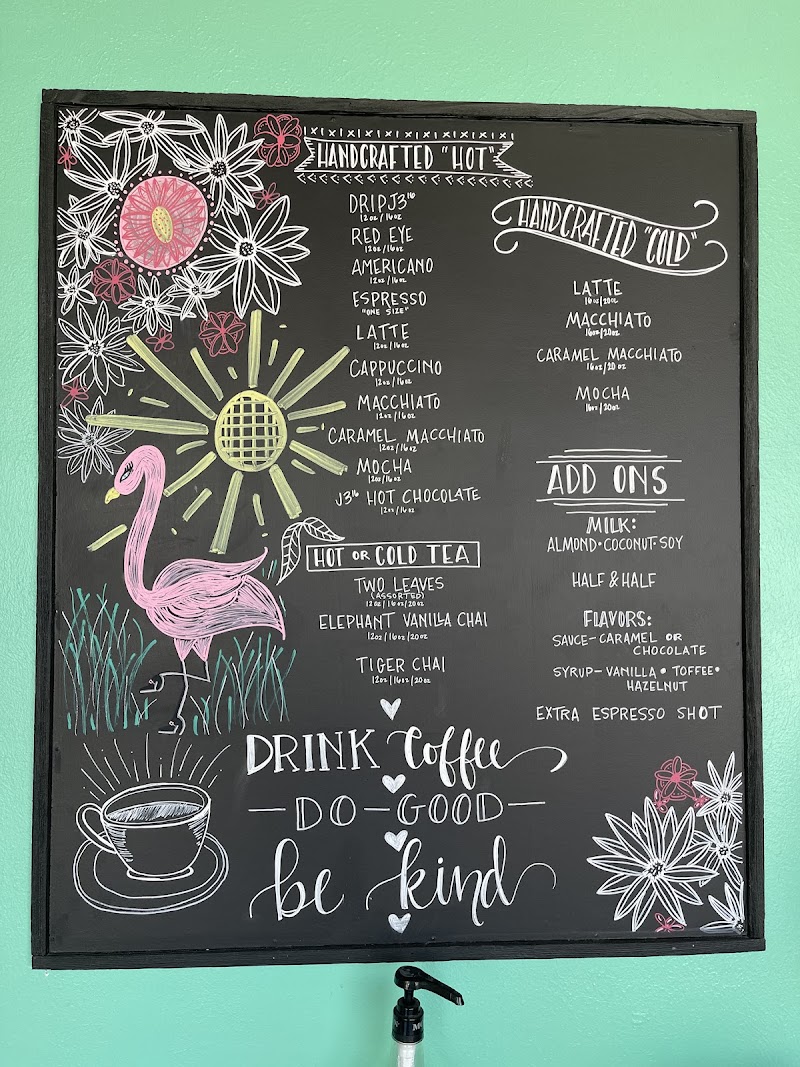 HANDCRAFTED "HOT"
DRIPJ3¹⁶
12oz/16oz
RED EYE
12oz/16oz
AMERICANO
12oz/16oz
ESPRESSO
"ONE SIZE"
LATTE
12oz/16oz
CAPPUCCINO
12oz/16oz
MACCHIATO
12oz/16oz
CARAMEL MACCHIATO
12oz/16oz
MOCHA
12oz/16oz
J3¹⁶ HOT CHOCOLATE
12oz/16oz
HOT OR COLD TEA
TWO LEAVES
(ASSORTED)
12oz/16oz/20oz
ELEPHANT VANILLA CHAI
12oz/16oz/20oz
TIGER CHAI
12oz/16oz/20oz
HANDCRAFTED "COLD"
LATTE
16oz/20oz
MACCHIATO
16oz/20oz
CARAMEL MACCHIATO
16oz/20oz
MOCHA
16oz/20oz
ADD ONS
MILK:
ALMOND•COCONUT•SOY
HALF & HALF
FLAVORS:
SAUCE-CARAMEL OR
CHOCOLATE
SYRUP-VANILLA•TOFFEE•
HAZELNUT
EXTRA ESPRESSO SHOT
DRINK Coffee
—DO—GOOD—
be kind